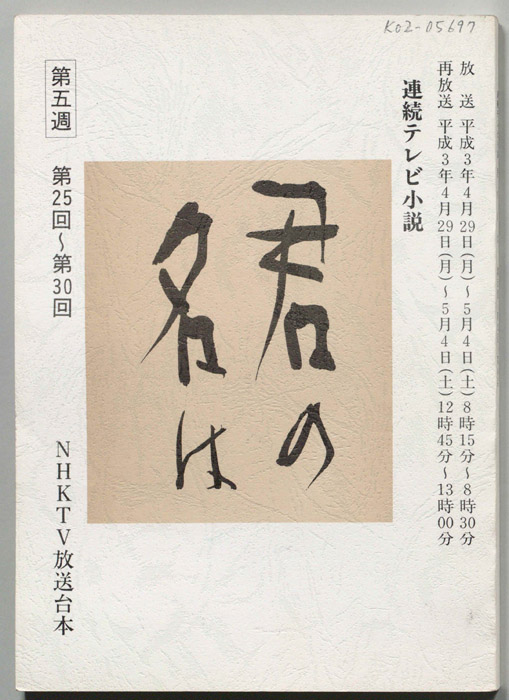 K02-05697
放　送 平成3年4月29日(月)～5月4日(土)8時15分～8時30分
再放送 平成3年4月29日(月)～5月4日(土)12時45分～13時00分
連続テレビ小説
君の
名は
第五週
第25回～第30回
NHKTV放送台本